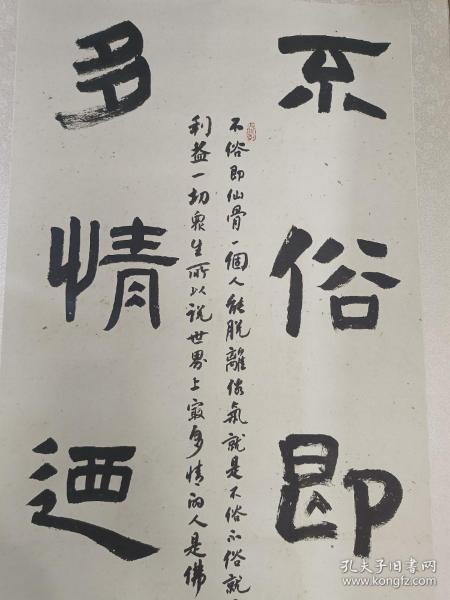 不俗即
不俗即仙骨一個人能脱離俗氣就是不俗不俗就
利益一切衆生所以说世界上最多情的人是佛
多情迺
孔夫子旧书网
www.kongfz.com